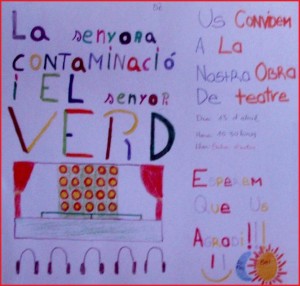 La senyora
contaminació
i EL senyor
VERD
Us Convidem
A La
Nostra Obra
De teatre
Esperem
Que Us
Agradi!!!